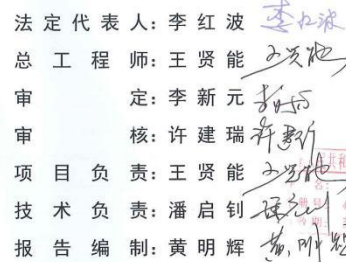 法定代表人：李红波 李红波
总工程师：王贤能 王贤能
审定：李新元
审核：许建瑞 许建瑞
项目负责：王贤能 王贤能
技术负责：潘启钊
报告编制：黄明辉 黄明辉